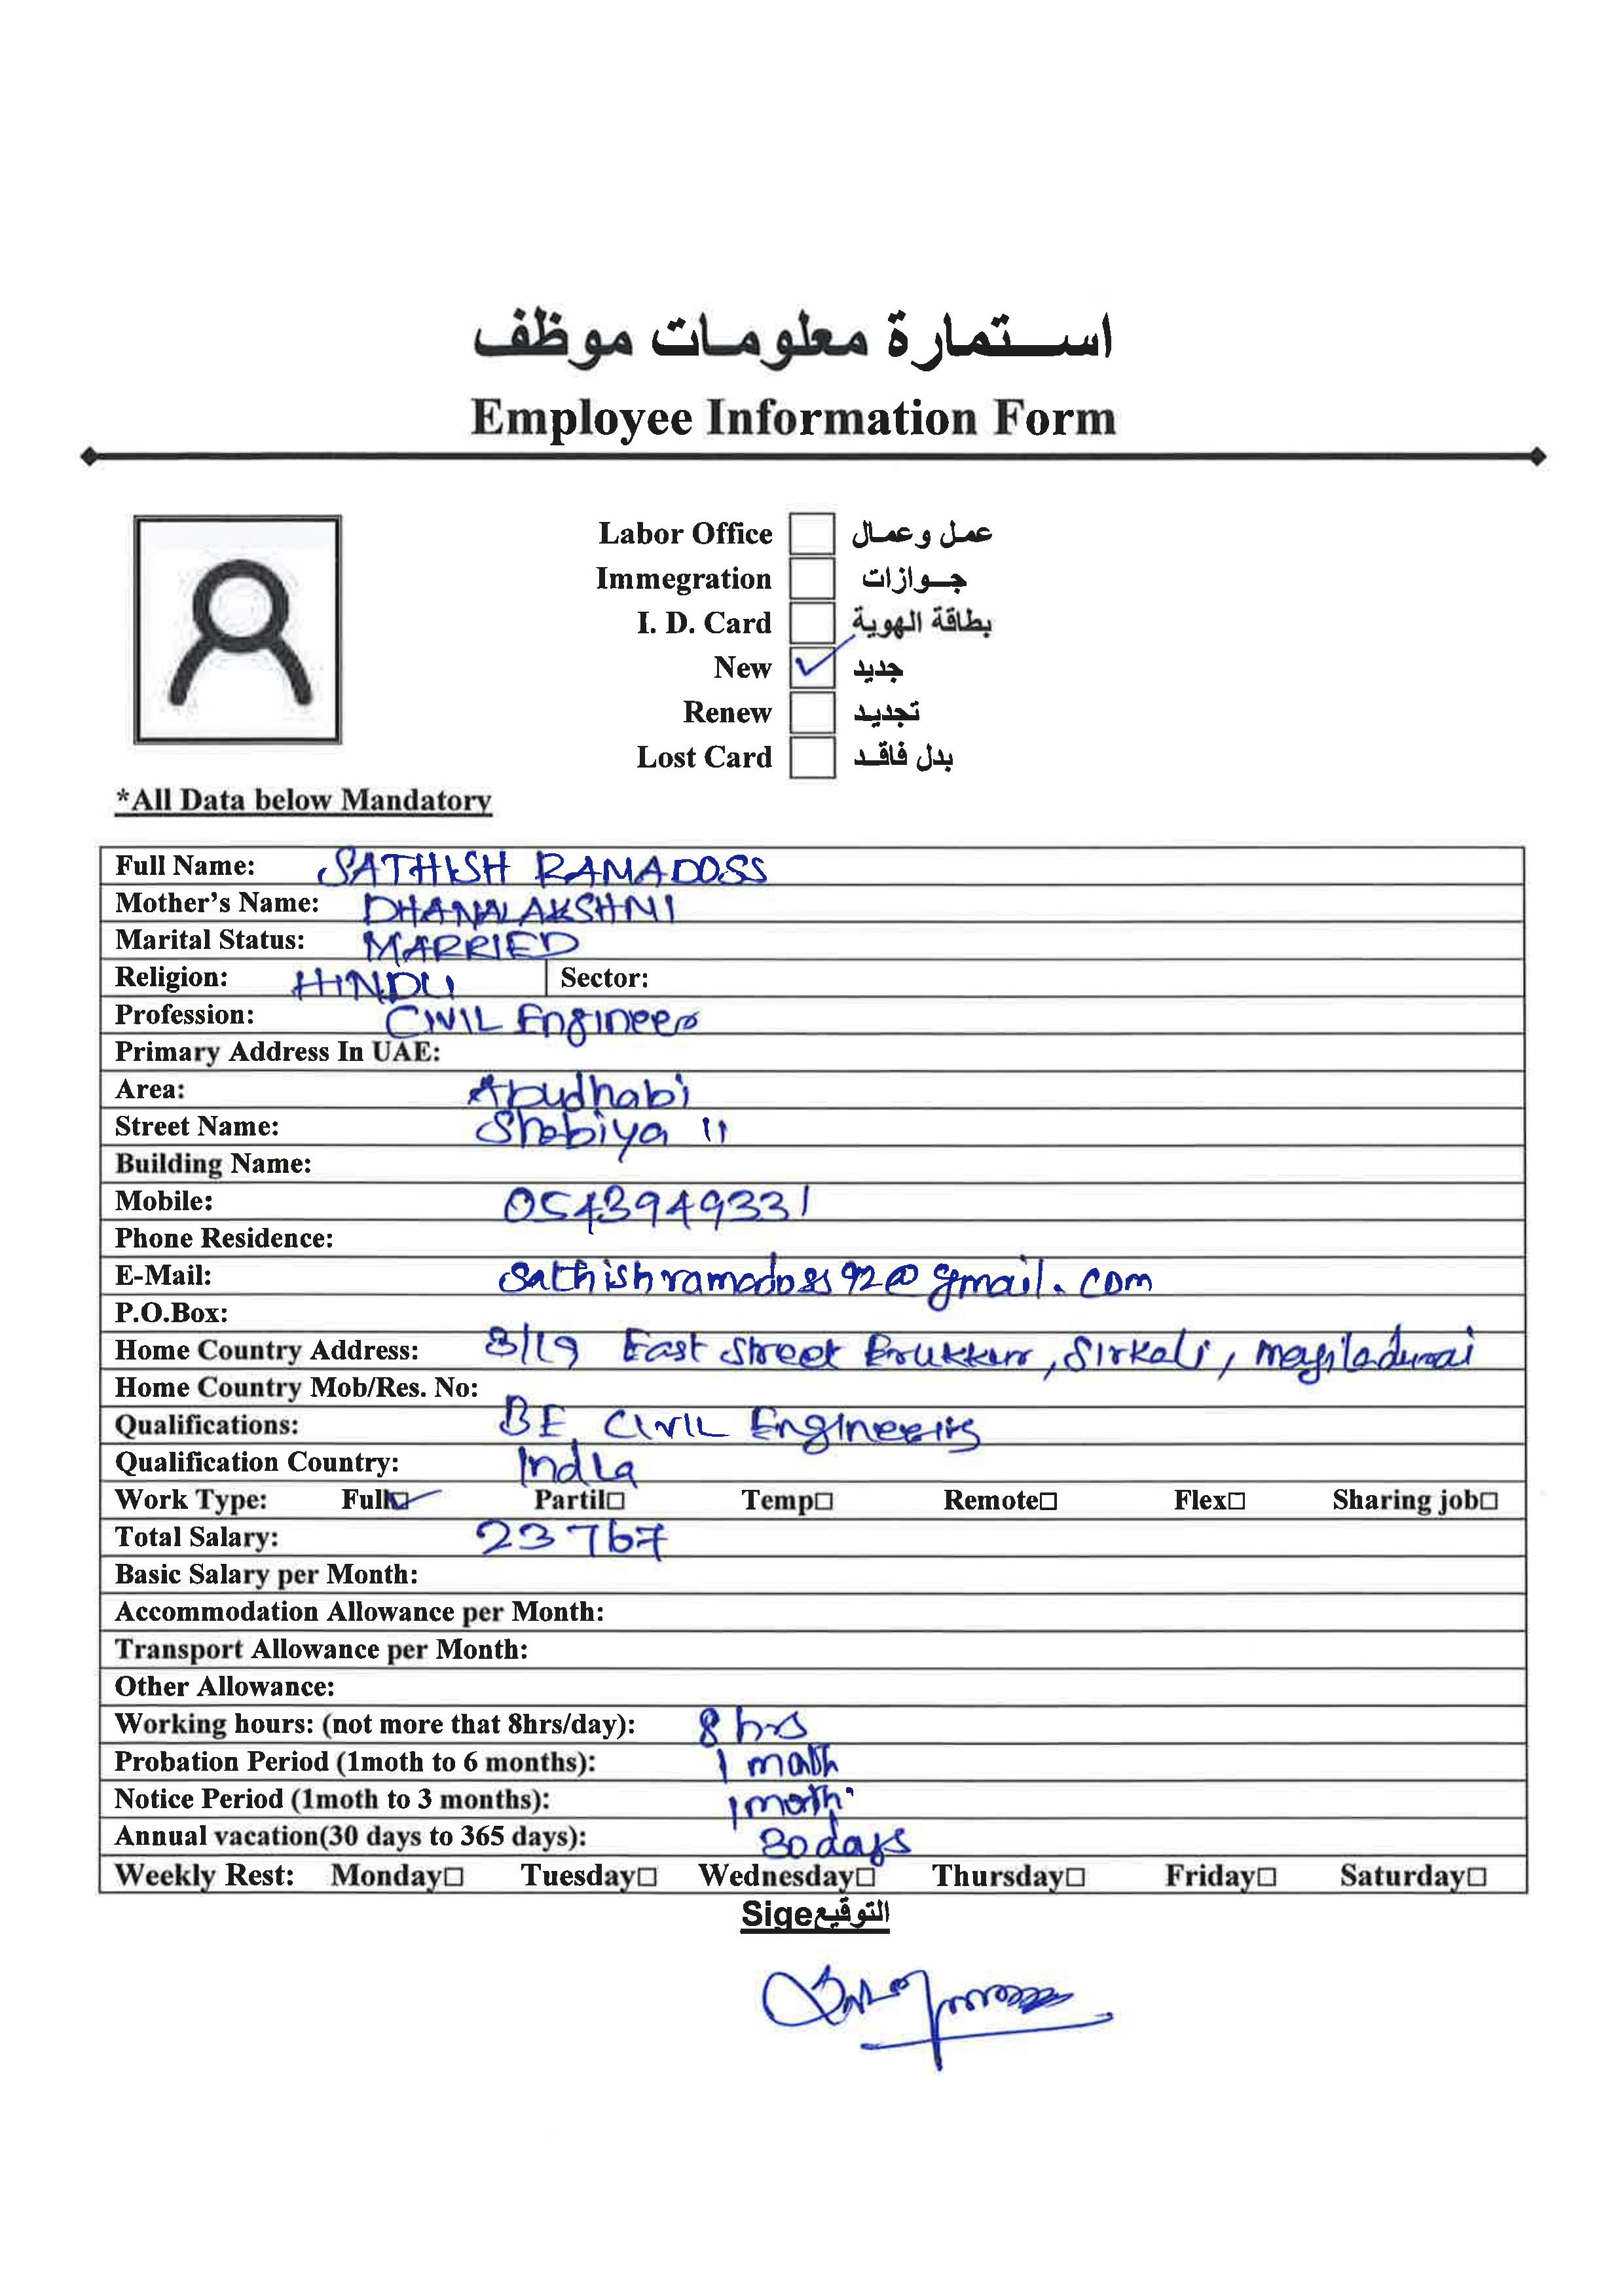 استمارة معلومات موظف
Employee Information Form
Labor Office عمل وعمال
Immegration جوازات
I. D. Card بطاقة الهوية
New ✓ جديد
Renew تجديد
Lost Card بدل فاقد
*All Data below Mandatory
Full Name: SATHISH RAMADOSS
Mother's Name: DHANALAKSHMI
Marital Status: MARRIED
Religion: HINDU Sector:
Profession: CIVIL Engineer
Primary Address In UAE:
Area: Abudhabi
Street Name: Shabiya 11
Building Name:
Mobile: 0543949331
Phone Residence:
E-Mail: sathishramadoss92@gmail.com
P.O.Box:
Home Country Address: 3/19 East Street Erukkur, Sirkali, Mayiladurai
Home Country Mob/Res. No:
Qualifications: BE CIVIL Engineering
Qualification Country: India
Work Type: Full☑ Partil□ Temp□ Remote□ Flex□ Sharing job□
Total Salary: 23767
Basic Salary per Month:
Accommodation Allowance per Month:
Transport Allowance per Month:
Other Allowance:
Working hours: (not more that 8hrs/day): 8 hrs
Probation Period (1moth to 6 months): 1 month
Notice Period (1moth to 3 months): 1 month
Annual vacation(30 days to 365 days): 30 days
Weekly Rest: Monday□ Tuesday□ Wednesday□ Thursday□ Friday□ Saturday□
Sige التوقيع